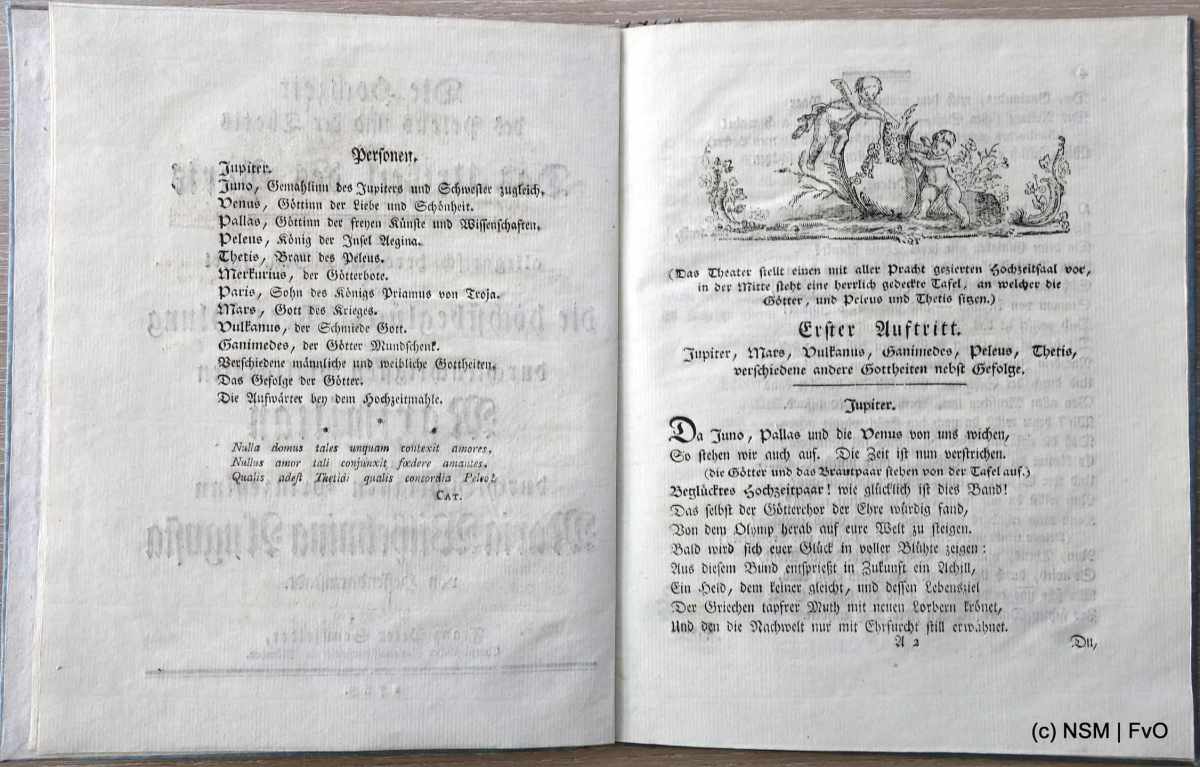 Personen.
Jupiter.
Juno, Gemahlinn des Jupiters und Schwester zugleich.
Venus, Göttinn der Liebe und Schönheit.
Pallas, Göttinn der freyen Künste und Wissenschaften.
Peleus, König der Insel Aegina.
Thetis, Braut des Peleus.
Merkurius, der Götterbote.
Paris, Sohn des Königs Priamus von Troja.
Mars, Gott des Krieges.
Vulkanus, der Schmiede Gott.
Ganimedes, der Götter Mundschenk.
Verschiedene männliche und weibliche Gottheiten.
Das Gefolge der Götter.
Die Aufwärter bey dem Hochzeitmahle.
* * *
Nulla domus tales unquam contexit amores.
Nullus amor tali conjunxit fœdere amantes.
Qualis adest Thetidi qualis concordia Peleo!
CAT.
(Das Theater stellt einen mit aller Pracht gezierten Hochzeitsaal vor,
in der Mitte steht eine herrlich gedeckte Tafel, an welcher die
Götter, und Peleus und Thetis sitzen.)
Erster Auftritt.
Jupiter, Mars, Vulkanus, Ganimedes, Peleus, Thetis,
verschiedene andere Gottheiten nebst Gefolge.
Jupiter.
Da Juno, Pallas und die Venus von uns wichen,
So stehen wir auch auf. Die Zeit ist nun verstrichen.
(die Götter und das Brautpaar stehen von der Tafel auf.)
Beglücktes Hochzeitpaar! wie glücklich ist dies Band!
Das selbst der Götterchor der Ehre würdig fand,
Von dem Olymp herab auf eure Welt zu steigen.
Bald wird sich euer Glück in voller Blühte zeigen:
Aus diesem Bund entsprießt in Zukunft ein Achill,
Ein Held, dem keiner gleicht, und dessen Lebensziel
Der Griechen tapfrer Muth mit neuen Lorbern krönet,
Und den die Nachwelt nur mit Ehrfurcht still erwähnet.
A 2
Du,
(c) NSM | FvO